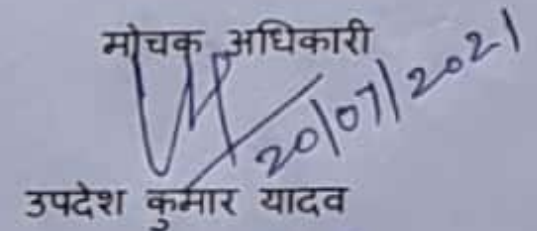 मोचक अधिकारी
20/07/2021
उपदेश कुमार यादव